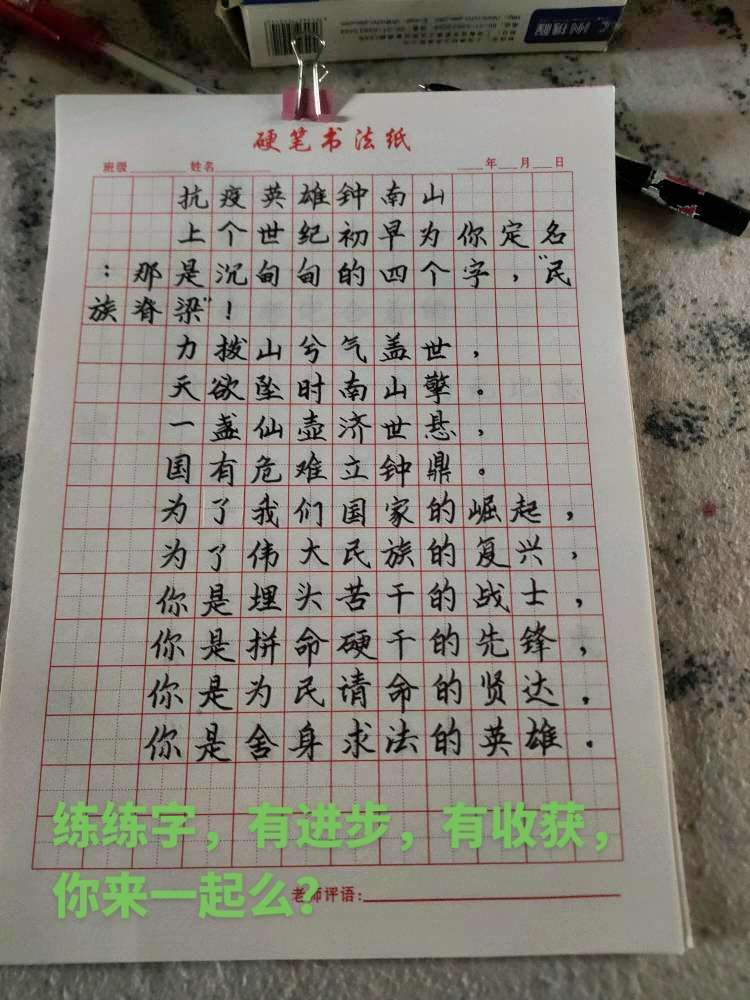 硬笔书法纸
班级 姓名 年 月 日
抗疫英雄钟南山
上个世纪初早为你定名
：那是沉甸甸的四个字，"民
族脊梁"！
力拨山兮气盖世，
天欲坠时南山擎。
一盏仙壶济世悬，
国有危难立钟鼎。
为了我们国家的崛起，
为了伟大民族的复兴，
你是埋头苦干的战士，
你是拼命硬干的先锋，
你是为民请命的贤达，
你是舍身求法的英雄．
练练字，有进步，有收获，
你来一起么？
老师评语：